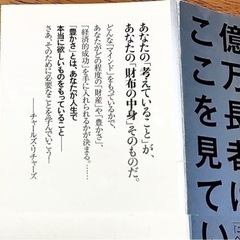 億万長者は
ここを見てい
あなたの「考えていること」が、
あなたの「財布の中身」そのものだ。
どんな「マインド」をもっているかで、
あなたがどの程度の「財産」や「豊かさ」、
「経済的成功」を手に入れられるかが決まる。……
「豊かさ」とは、あなたが人生で
本当に欲しいものをもっていること——
さあ、そのために必要なことを学んでいこう！
——チャールズ・リチャーズ